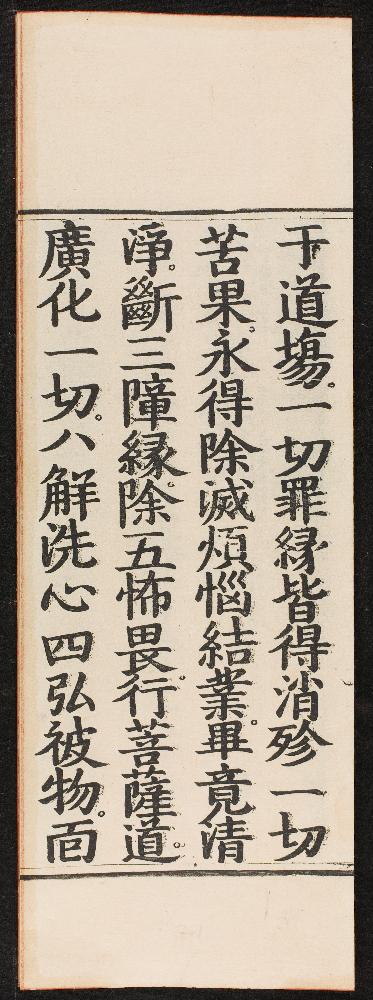 于道場。一切罪縁皆得消殄一切
苦果。永得除滅煩惱結業。畢竟清
淨。斷三障縁。除五怖畏。行菩薩道。
廣化一切。八解洗心四弘被物。面